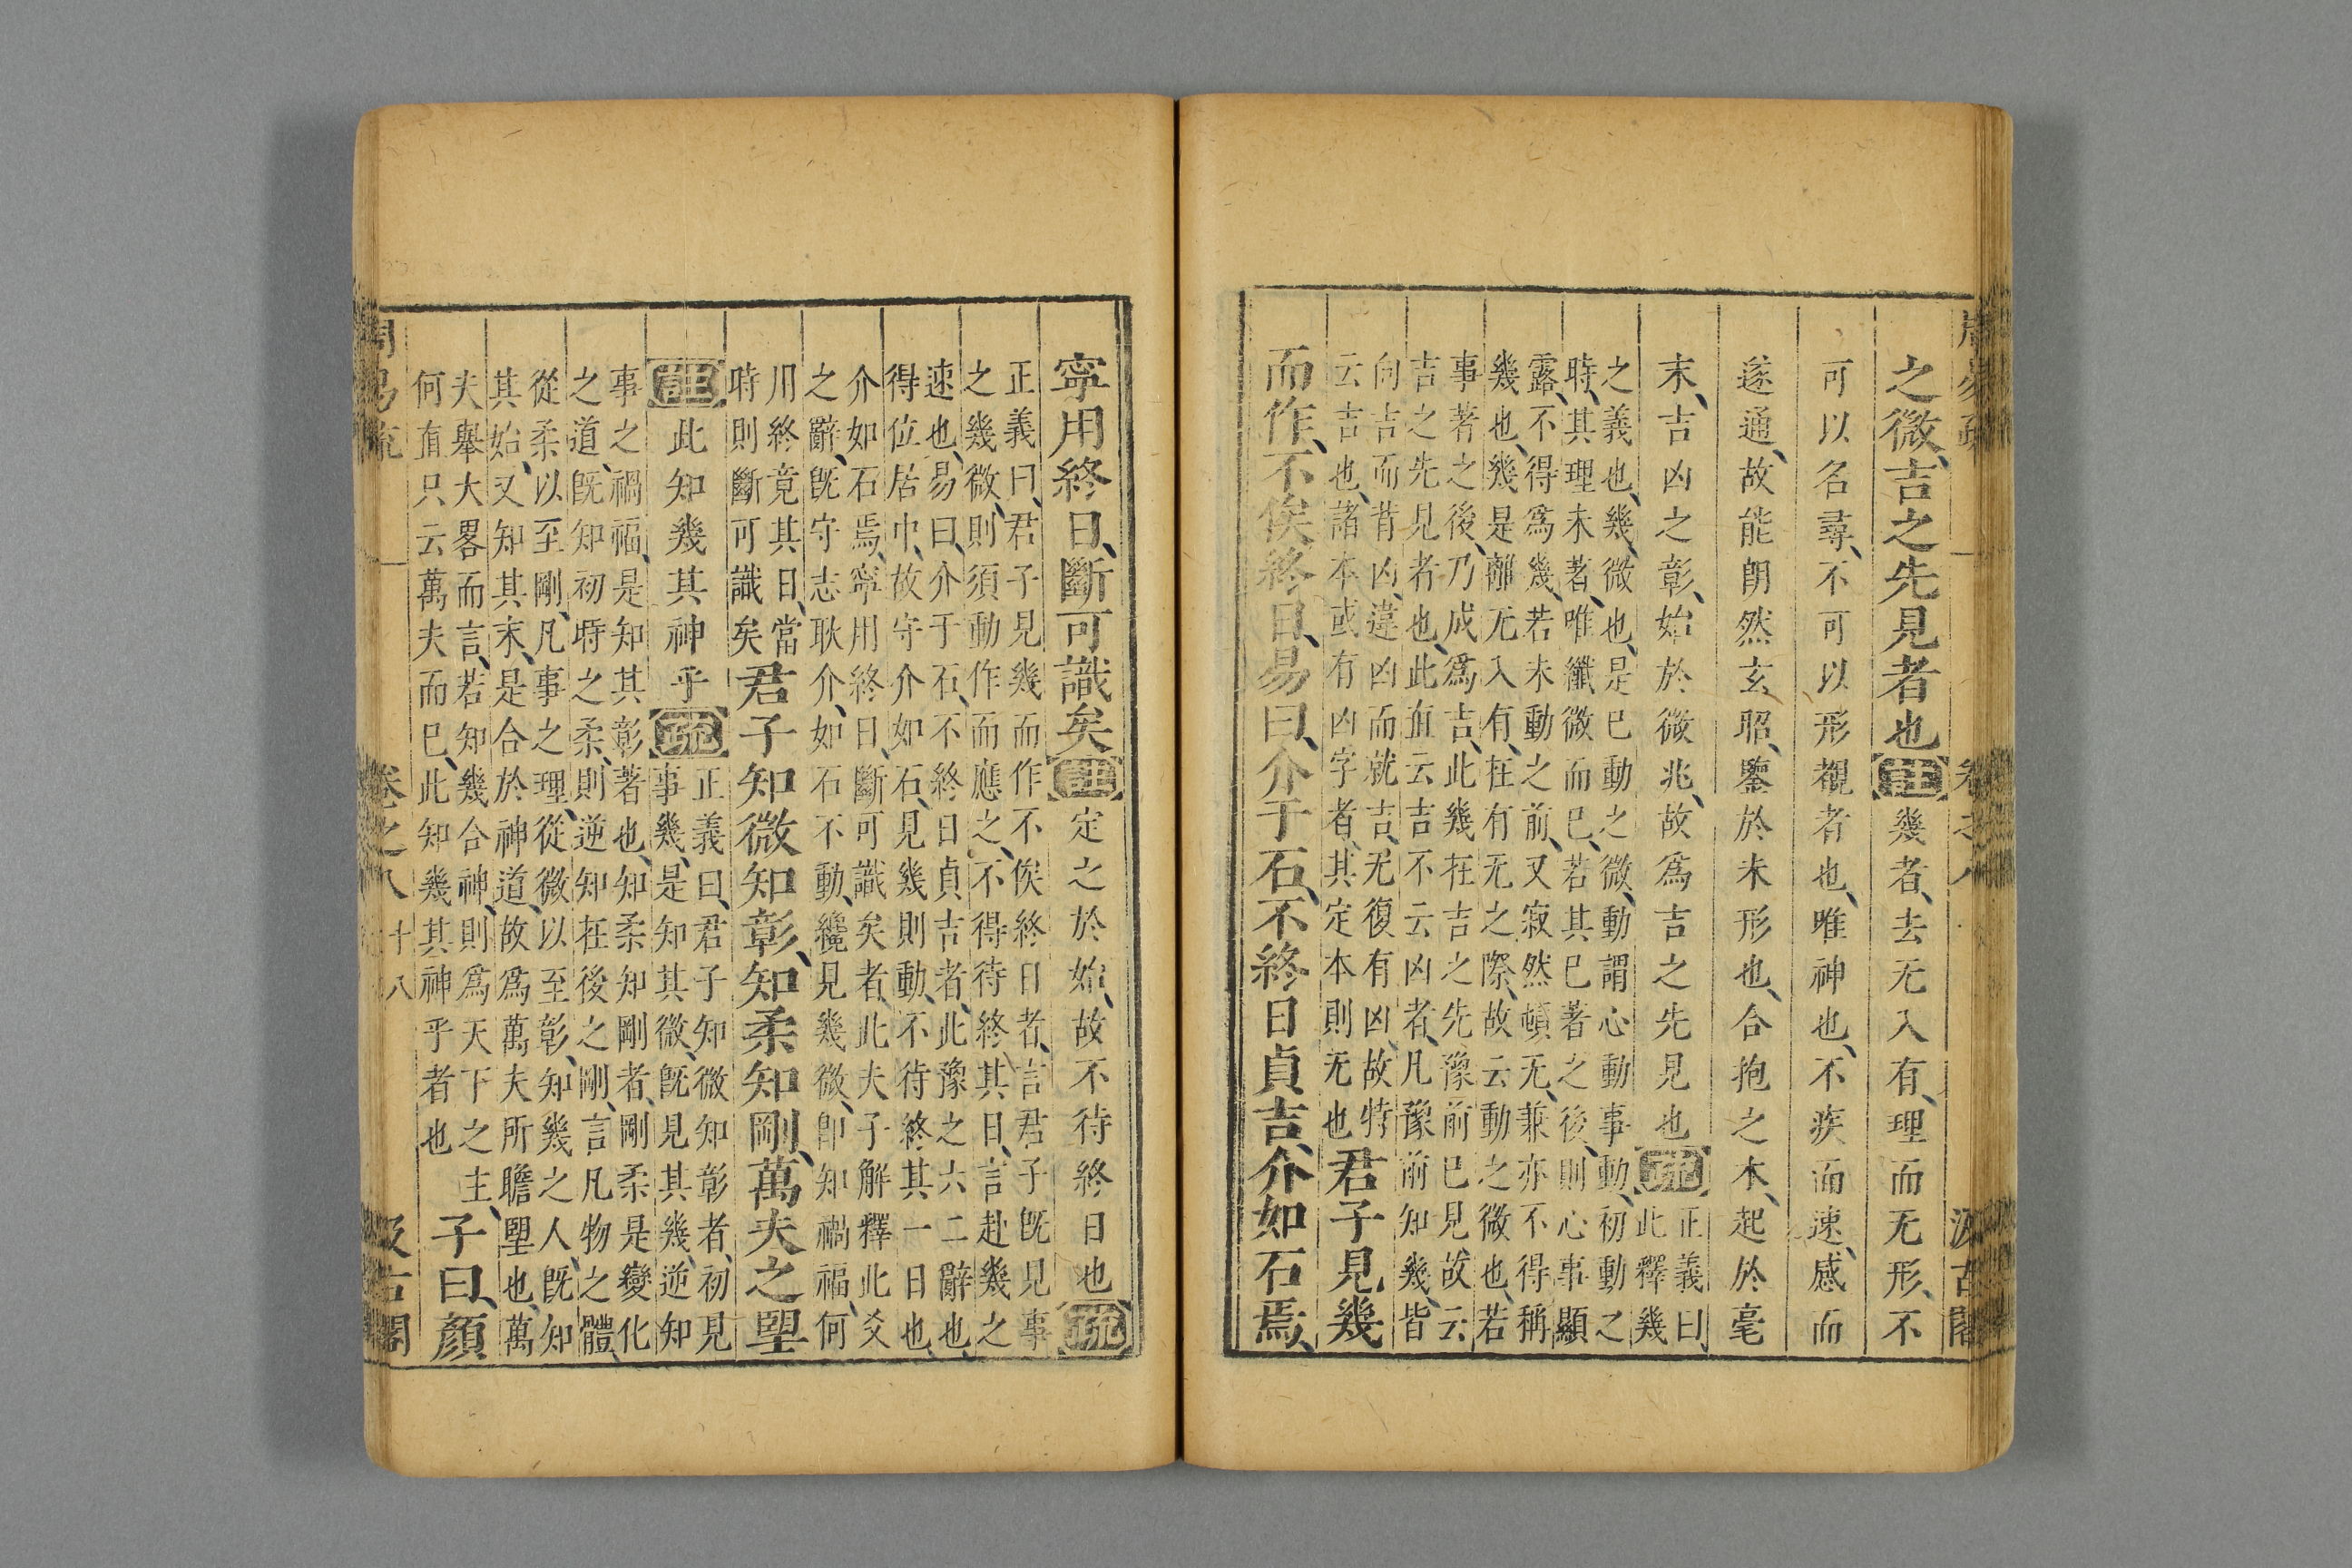 周易疏 卷之八 汲古閣
之微、吉之先見者也註幾者、去无入有、理而无形、不
可以名尋、不可以形覩者也、唯神也、不疾而速、感而
遂通、故能朗然玄昭、鑒於未形也、合抱之木、起於毫
末、吉凶之彰、始於微兆、故爲吉之先見也疏正義曰、
此釋幾
之義也、幾、微也、是已動之微、動謂心動事動、初動之
時、其理未著、唯纖微而已、若其已著之後、則心事顯
露、不得爲幾、若未動之前、又寂然頓无、兼亦不得稱
幾也、幾是離无入有、在有无之際、故云動之微也、若
事著之後、乃成爲吉、此幾在吉之先豫前已見、故云
吉之先見者也、此直云吉不云凶者、凡豫前知幾、皆
向吉而背凶、違凶而就吉、无復有凶、故特
云吉也、諸本或有凶字者、其定本則无也
君子見幾
而作、不俟終日、易曰、介于石、不終日貞吉、介如石焉、
寧用終日、斷可識矣註定之於始、故不待終日也疏
正義曰、君子見幾而作不俟終日者、言君子旣見事
之幾微、則須動作而應之、不得待終其日、言赴幾之
速也、易曰、介于石、不終日貞吉者、此豫之六二辭也、
得位居中、故守介如石、見幾則動、不待終其一日也、
介如石焉、寧用終日、斷可識矣者、此夫子解釋此爻
之辭、旣守志耿介、如石不動、纔見幾微、卽知禍福、何
用終竟其日、當
時則斷可識矣
君子知微知彰、知柔知剛、萬夫之望
註此知幾其神乎疏正義曰、君子知微知彰者、初見
事幾、是知其微、旣見其幾、逆知
事之禍福、是知其彰著也、知柔知剛者、剛柔是變化
之道、旣知初時之柔、則逆知在後之剛、言凡物之體、
從柔以至剛、凡事之理、從微以至彰、知幾之人、旣知
其始、又知其末、是合於神道、故爲萬夫所瞻望也、萬
夫舉大畧而言、若知幾合神、則爲天下之主、
何直只云萬夫而已、此知幾其神乎者也
子曰、顏
周易疏 卷之八 十八 汲古閣